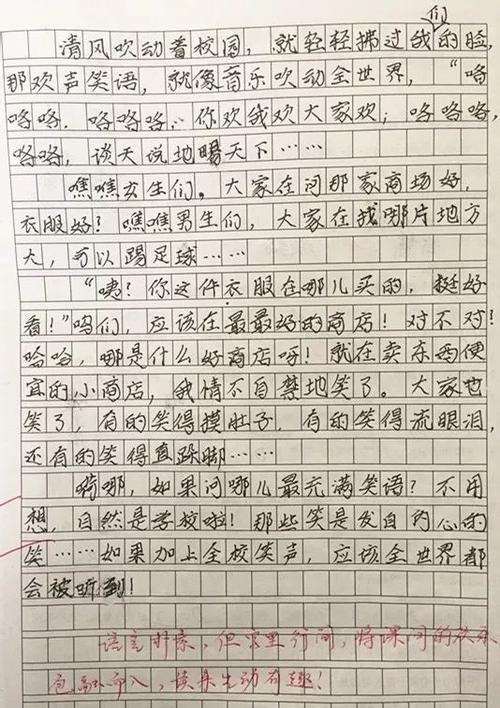 们
清风吹动着校园，就轻轻拂过我的脸，
那欢声笑语，就像音乐吹动全世界，“咯
咯咯．咯咯咯∴你欢我欢大家欢；咯咯咯，
咯咯，谈天说地踢天下……
瞧瞧女生们。大家在问那家商场好，
衣服好？瞧瞧男生们，大家在找哪片地方
大，可以踢足球……
“啸？你这件衣服在哪儿买的，挺好
看！”呜们，应该在最最好的商店！对不对？
哈哈，哪是什么好商店呀！就在卖东西便
宜的小商店，我情不自禁地笑了。大家也
笑了，有的笑得摸肚子，有的笑得流眼泪，
还有的笑得直跺脚……
嗬哪，如果问哪儿最充满笑语？不用
想，自然是学校啦！那些笑是发自内心的
笑……如果加上全校笑声，应该全世界都
会被听到！
语言形象，但字里行间，将课间的欢乐
包融而入，读来生动有趣！